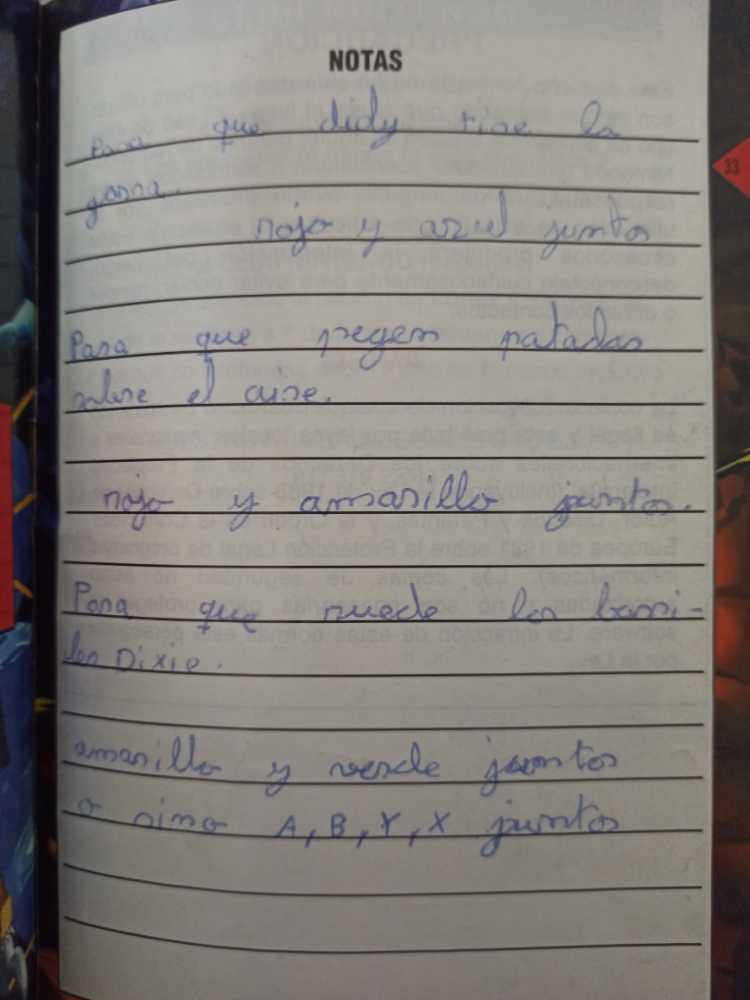 NOTAS
Para que didy tire la
gorra.
rojo y azul juntos
33
Para que pegen patadas
sobre el aire.
rojo y amarillo juntos.
Para que ruede los barri-
les Dixie.
amarillo y verde juntos
o sino A, B, Y, X juntos